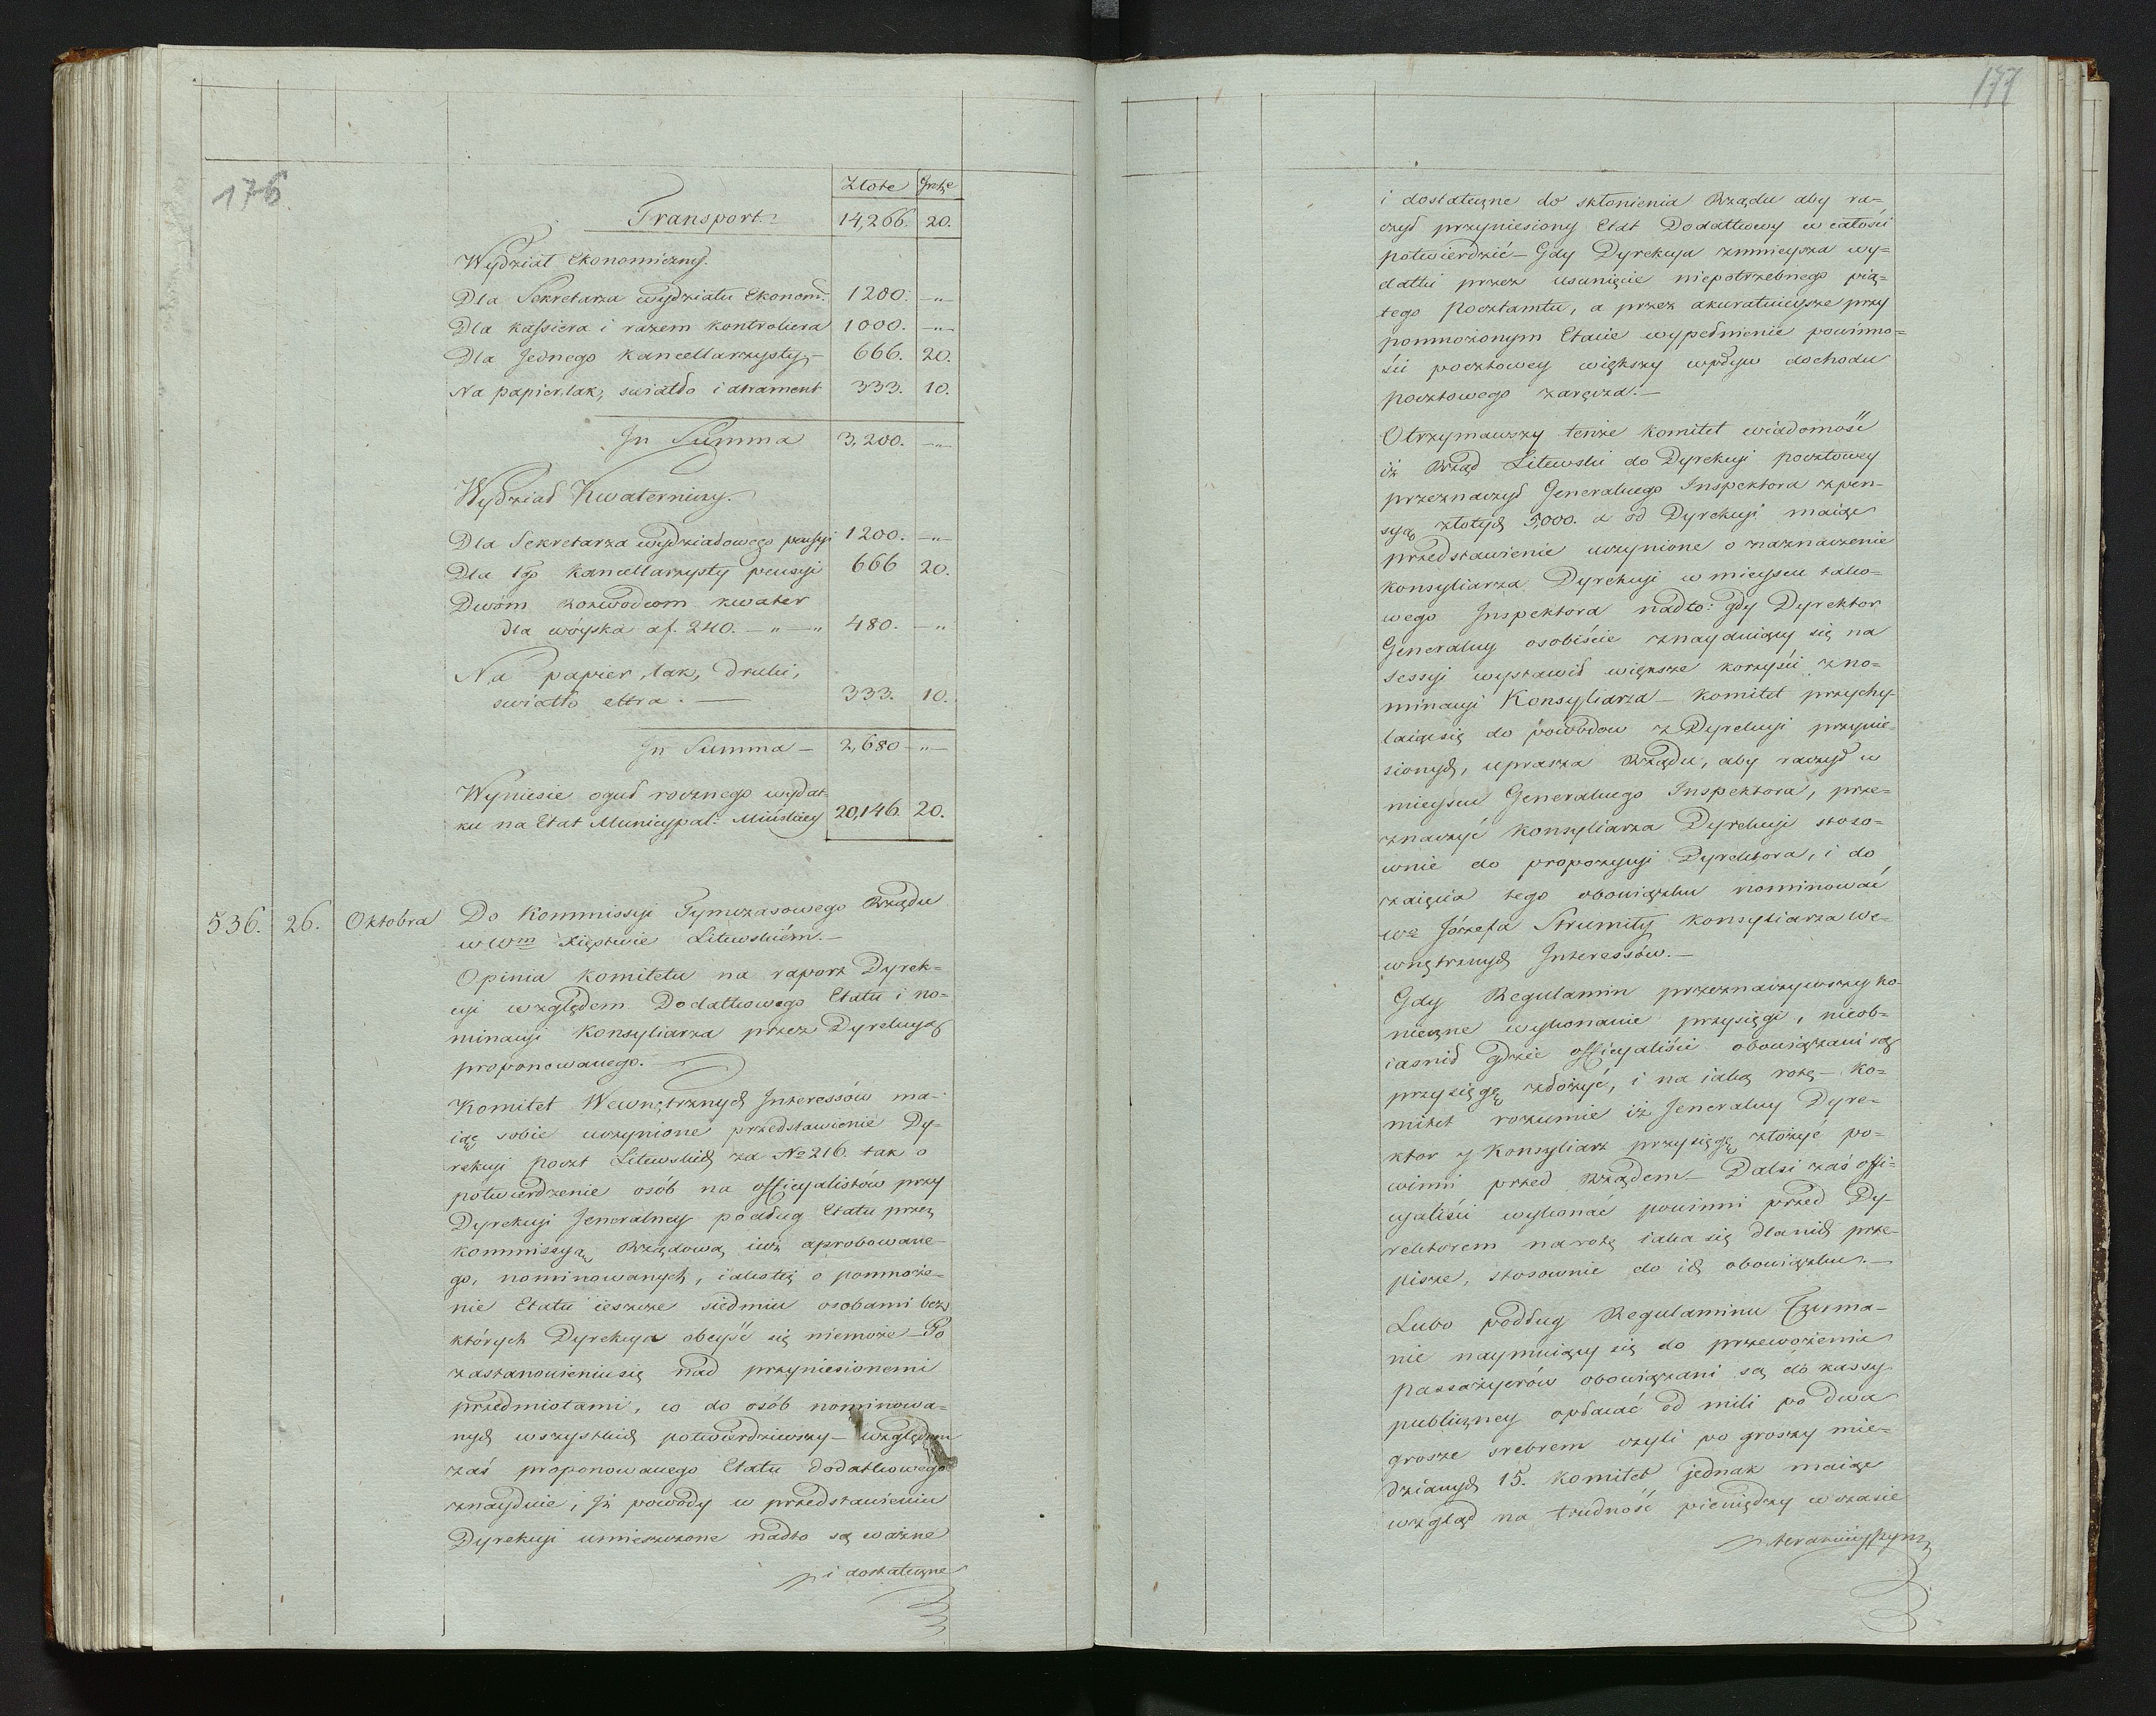 176.
Złote grze
Transport. 14,266. 20.
Wydział Ekonomiczny.
Dla Sekretarza wydziału Ekonom: 1200. -„-
Dla kassiera i razem kontrollera 1000. -„-
Dla Jednego kancellarzysty - 666. 20.
Na papier, lak, swiatło i atrament 333. 10.
In Summa 3,200. -„-
Wydział Kwaterniczy.
Dla Sekretarza wydziałowego pensyi 1200. -„-
Dla 1go kancellarzysty pensyi 666 20.
Dwóm rozwodcom kwater
dla wóyska af. 240. -„-„ 480. -„
Na papier, lak, druki,
swiatło ettra. — 333. 10.
In Summa - 2,680 -„-
Wyniesie oguł rocznego wydat-
ku na Etat Municypal: Mińskiey 20,146. 20.
536. 26. Oktobra Do Kommissyi Tymczasowego Rządu
w Wm Xięstwie Litewskiém.—
Opinia komitetu na raport Dyrek-
cyi względem Dodatkowego Etatu i no-
minacyi Konsyliarza przez Dyrekcyą
proponowanego.—
Komitet Wewnętrznych Interessów ma-
iąc sobie uczynione przedstawienie Dy-
rekcyi poczt Litewskich za No 216. tak o
potwierdzenie osób na officyalistów przy
Dyrekcyi Jeneralney podług Etatu przez
kommissyą Rządową iuż aprobowane-
go, nominowanych, iakoteż o pomnoże-
nie Etatu ieszcze siedmiu osobami bez
których Dyrekcya obeyść się niemoże - Po
zastanowieniu się nad przyniesionemi
przedmiotami, co do osób nominowa-
nych wszystkich potwierdziwszy - względem
zaś proponowanego Etatu dodatkowego
znayduie, iż powody w przedstawieniu
Dyrekcyi umieszczone nadto są ważne
i dostateczne
177
i dostateczne do skłonienia Rządu aby ra-
czył przyniesiony Etat Dodatkowy w całości
potwierdzić - Gdy Dyrekcya zmnieysza wy-
datki przez usunięcie niepotrzebnego pią-
tego Pocztamtu, a przez akuratnieysze przy
pomnożonym Etacie wypełnienie powinno-
ści pocztowey większy wpływ dochodu
pocztowego zaręcza.—
Otrzymawszy tenże komitet wiadomość
iż Rząd Litewski do Dyrekcyi pocztowey
przeznaczył Generalnego Inspektora z pen-
syą złotych 5,000. a od Dyrekcyi maiąc
przedstawienie uczynione o naznaczenie
konsyliarza Dyrekcyi w mieyscu tako-
wego Inspektora nadto: gdy Dyrektor
Generalny osobiście znayduiący się na
sessyi wystawił większe korzyści z no-
minacyi Konsyliarza - komitet przychy-
laiąc się do powodow z Dyrekcyi przynie-
sionych, uprasza Rządu, aby raczył w
mieyscu Generalnego Inspektora, prze-
znaczyć konsyliarza Dyrekcyi stoso-
wnie do propozycyi Dyrektora, i do
zaięcia tego obowiązku nominować
Wo Józefa Strumiłę konsyliarza We-
wnętrznych Interessów.—
Gdy Regulamin przeznaczywszy ko-
nieczne wykonanie przysięgi, nieob-
iasnił gdzie officyaliści obowiązani są
przysięgę złożyć, i na iaką rotę - Ko-
mitet rozumie iż Jeneralny Dyre-
ktor y Konsyliarz przysięgę złożyć po-
winni przed Rządem - Dalsi zaś offi-
cyaliści wykonać powinni przed Dy-
rektorem na rotę iaka się dla nich prze-
pisze, stosownie do ich obowiązku.—
Lubo podług Regulaminu Czurma-
nie naymuiący się do przewożenia
passażyerów obowiązani są do kassy
publiczney opłacać od mili po dwa
grosze srebrem czyli po groszy mie-
dzianych 15. Komitet jednak maiąc
wzgląd na trudność pieniędzy w czasie
teraznieyszym